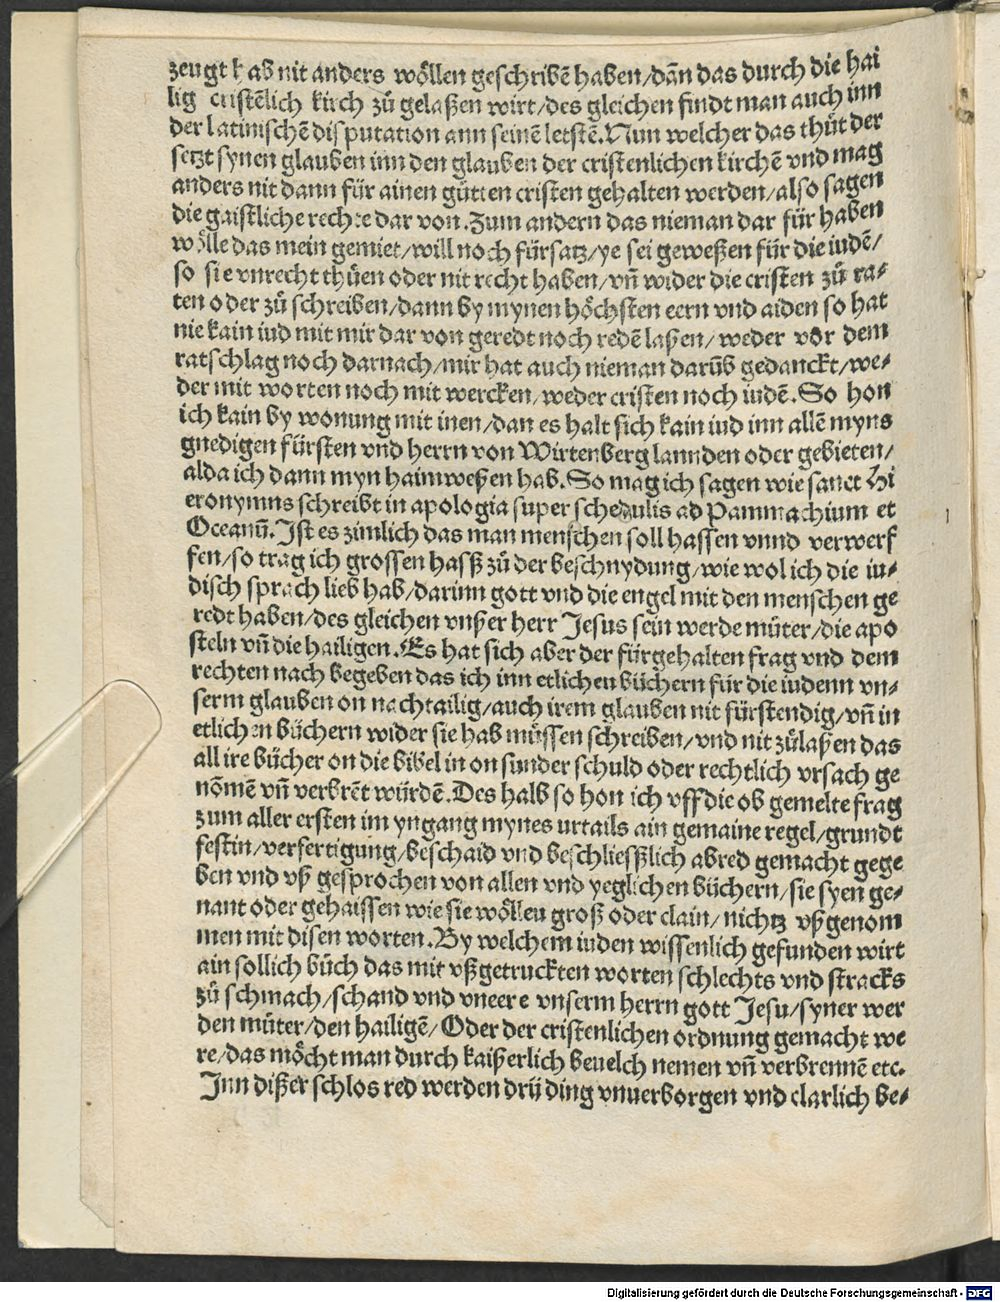 zeugt hab nit anders wöllen geschribē haben/dān das durch die hai
lig cristēlich kirch zů gelaßen wirt/des gleichen findt man auch inn
der latinischē disputation ann seinē letstē. Nun welcher das thůt der
setzt synen glauben inn den glauben der cristenlichen kirchē vnd mag
anders nit dann für ainen gůtten cristen gehalten werden/also sagen
die gaistliche rechte dar von. Zum andern das nieman dar für haben
wölle das mein gemiet/will noch fürsatz/ye sei geweßen für die iudē/
so sie vnrecht thüen oder nit recht haben/vn̄ wider die cristen zů ra-
ten oder zů schreiben/dann by mynen höchsten eern vnd aiden so hat
nie kain iud mit mir dar von geredt noch redē laßen/weder vor dem
ratschlag noch darnach/mir hat auch nieman darūb gedanckt/we-
der mit worten noch mit wercken/weder cristen noch iudē. So hon
ich kain by wonung mit inen/dan es halt sich kain iud inn allē myns
gnedigen fürsten vnd herrn von Wirtenberg lannden oder gebieten/
alda ich dann myn haimweßen hab. So mag ich sagen wie sanct Hi
eronymns schreibt in apologia super schedulis ad Pammachium et
Oceanū. Ist es zimlich das man menschen soll hassen vnnd verwerf
fen/so trag ich grossen hasß zů der beschnydung/wie wol ich die iu-
disch sprach lieb hab/darinn gott vnd die engel mit den menschen ge
redt haben/des gleichen vnßer herr Jesus sein werde můter/die apo
steln vn̄ die hailigen. Es hat sich aber der fürgehalten frag vnd dem
rechten nach begeben das ich inn etlichen büchern für die iudenn vn-
serm glauben on nachtailig/auch irem glauben nit fürstendig/vn̄ in
etlichen büchern wider sie hab müssen schreiben/vnd nit zůlaßen das
all ire bücher on die bibel in on sunder schuld oder rechtlich vrsach ge
nōmē vn̄ verbrēt würdē. Des halb so hon ich vff die ob gemelte frag
zum aller ersten im yngang mynes urtails ain gemaine regel/grundt
festin/verfertigung/beschaid vnd beschliesßlich abred gemacht gege
ben vnd vß gesprochen von allen vnd yeglichen büchern/sie syen ge-
nant oder gehaissen wie sie wöllen groß oder clain/nichtz vßgenom
men mit disen worten. By welchem iuden wissenlich gefunden wirt
ain sollich bůch das mit vßgetruckten worten schlechts vnd stracks
zů schmach/schand vnd vneere vnserm herrn gott Jesu/syner wer
den můter/den hailigē/Oder der cristenlichen ordnung gemacht we
re/das möcht man durch kaißerlich beuelch nemen vn̄ verbrennē etc.
Inn dißer schlos red werden drü ding vnuerborgen vnd clarlich be-
Digitalisierung gefördert durch die Deutsche Forschungsgemeinschaft - DFG